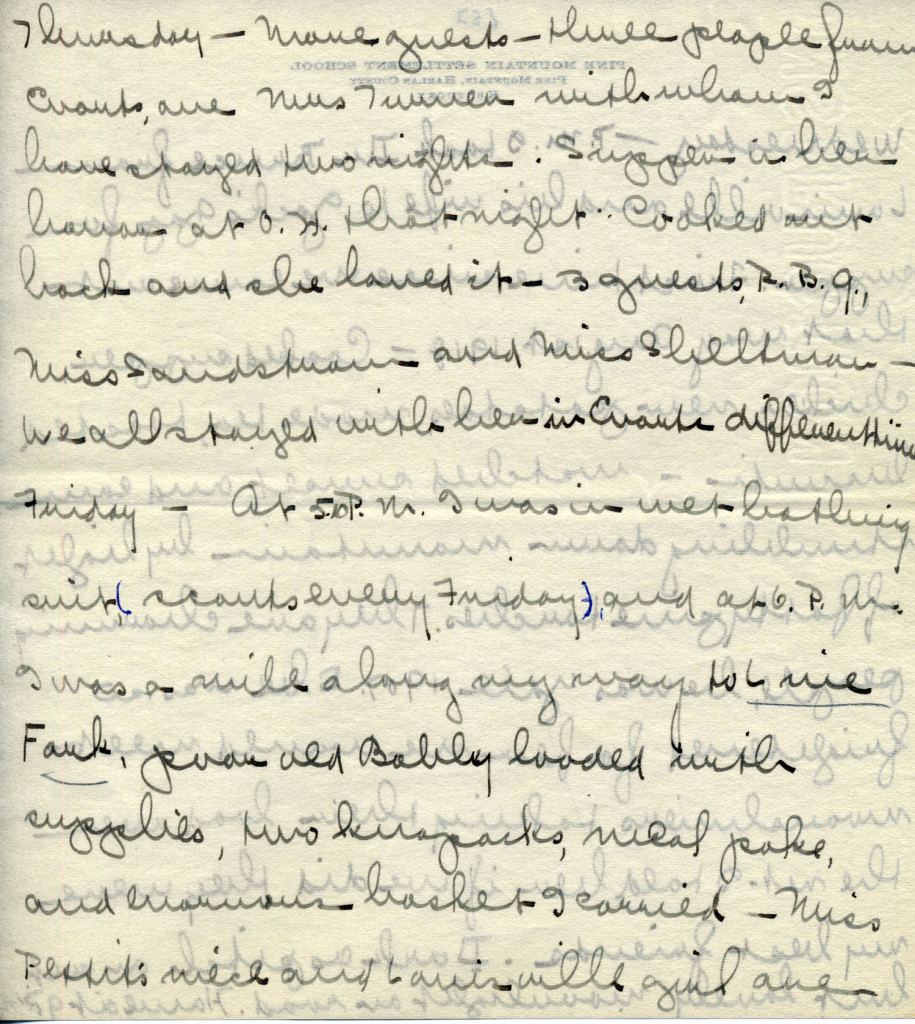 Thursday — More guests — three people from
Evarts, one Mrs Turner with whom I
have stayed two nights. Supper in her
honor at O. H. that night. Cooked out
back and she loved it — 3 guests, R. B. G.,
Miss Sandstrom — and Miss —
We all stayed with her in Evarts different times
Friday — At 5 P. M. I was in wet bathing
suit (scouts every Friday), and at 6. P. M.
I was a mile along my way to Line
Fork, poor old Bobby loaded with
supplies, two knapsacks, meal poke,
and enormous basket I carried — Miss
Pettit's niece and Louisville girl are
PINE MOUNTAIN SETTLEMENT SCHOOL
PINE MOUNTAIN, HARLAN COUNTY